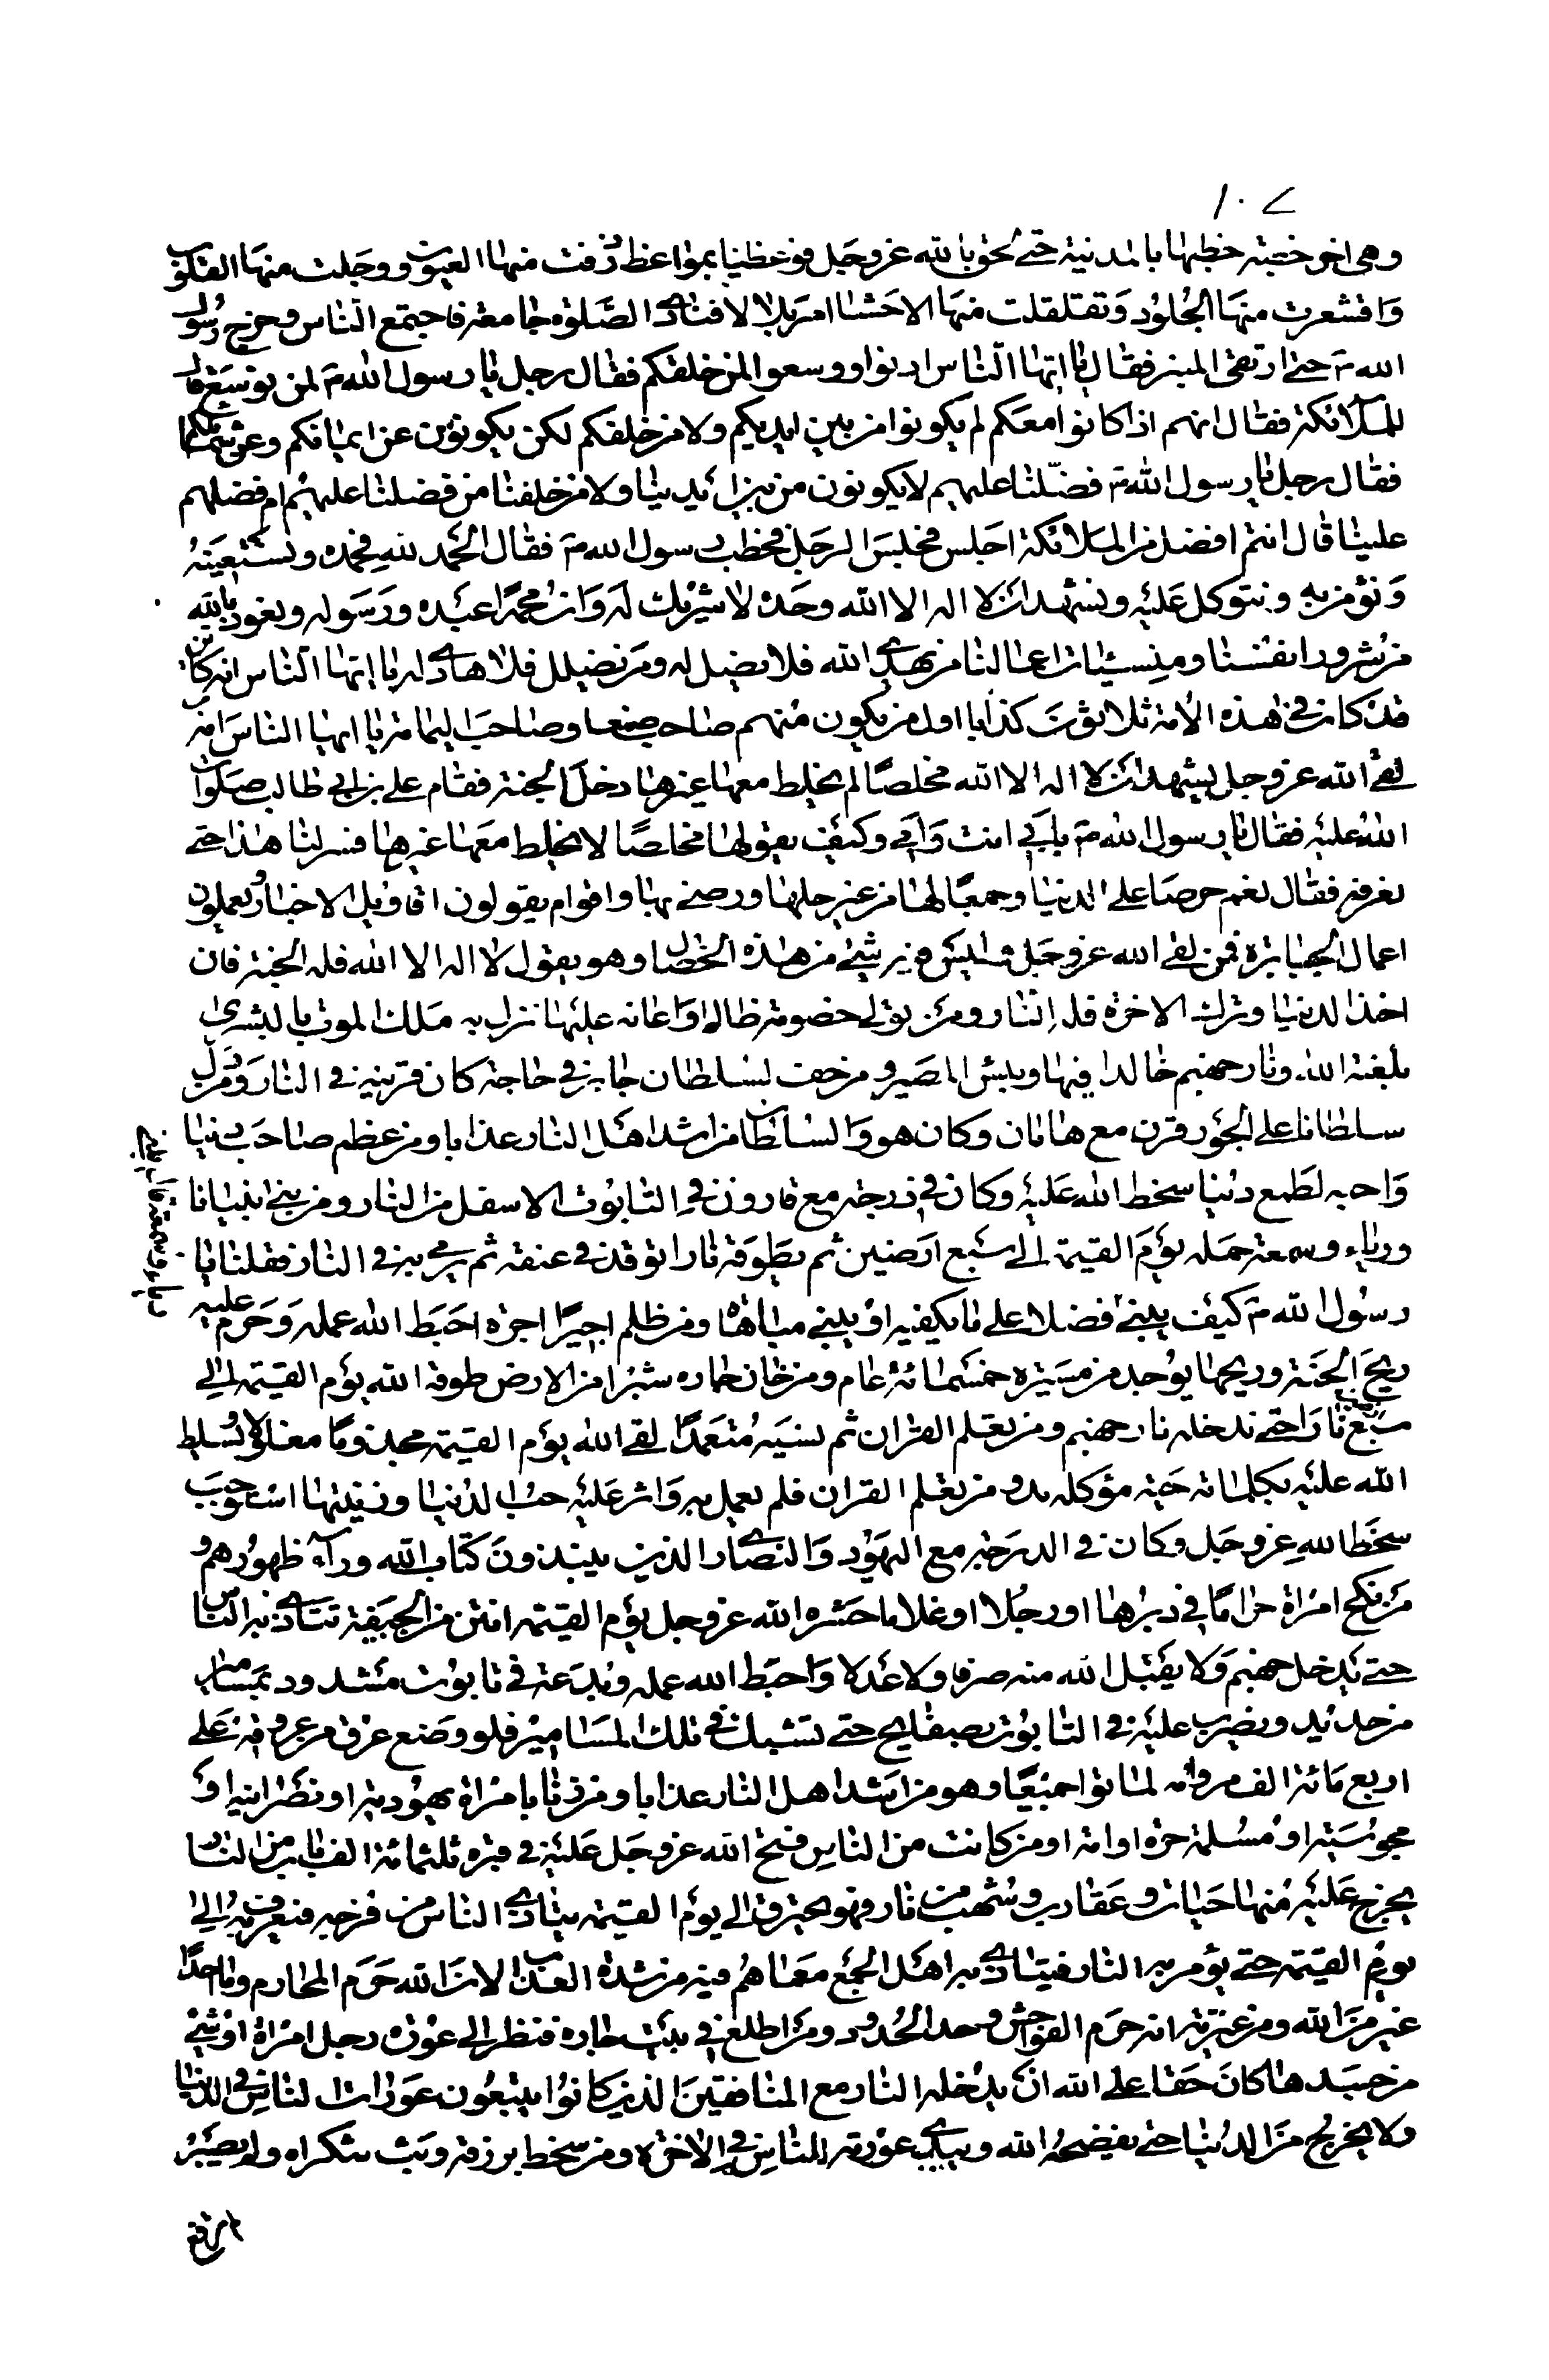 ١٠٧
وهى اخر خطبة خطبها بالمدينة حتى لحق بالله عز وجل فوعظنا بمواعظ ذرفت منها العيون ووجلت منها القلوب
واقشعرت منها الجلود وتقلقلت منها الاحشا امر بلالا فنادى الصلوة جامعة فاجتمع الناس وخرج رسول
الله ص حتى ارتقى المنبر فقال يا ايها الناس ادنوا ووسعوا لمن خلفكم فقال رجل يا رسول الله ص لمن نوسع قال
للملائكة فقال انهم اذا كانوا معكم لم يكونوا من بين ايديكم ولا من خلفكم لكن يكونون عن ايمانكم وعن شمائلكم
فقال رجل يا رسول الله ص فضلنا عليهم لا يكونون من بين ايدينا ولا من خلفنا من فضلنا عليهم ام فضلهم
علينا قال انتم افضل من الملائكة اجلس فجلس الرجل فخطب رسول الله ص فقال الحمد لله نحمده ونستعينه
ونؤمن به ونتوكل عليه ونشهد ان لا اله الا الله وحده لا شريك له وان محمدا عبده ورسوله ونعوذ بالله
من شرور انفسنا ومن سيئات اعمالنا من يهدى الله فلا يضل له ومن يضلل فلا هادى له يا ايها الناس انه كائن
فى هذه الامة ثلاثون كذابا اول من يكون منهم صاحب صنعا وصاحب اليمامة يا ايها الناس انه من
لقى الله عز وجل يشهد ان لا اله الا الله مخلصا لم يخلط معها غيرها دخل الجنة فقام على بن ابى طالب صلوات
الله عليه فقال يا رسول الله ص بابى انت وامى وكيف يقولها مخلصا لا يخلط معها غيرها فسر لنا هذا حتى
نعرفه فقال نعم حرصا على الدنيا وجمعا لها من غير حلها ورضى بها واقوام يقولون اقاويل الاخيار ويعملون
اعمال الجبابرة فمن لقى الله عز وجل وليس فيه شىء من هذه الخصال وهو يقول لا اله الا الله فله الجنة فان
اخذ الدنيا وترك الاخرة فله النار ومن تولى خصومة ظالم او اعانه عليها نزل به ملك الموت بالبشرى
بلعنة الله ونار جهنم خالدا فيها وبئس المصير ومن خف لسلطان جاير فى حاجة كان قرينه فى النار ومن دل
سلطانا على الجور قرن مع هامان وكان هو والسلطان من اشد اهل النار عذابا ومن عظم صاحب دنيا
واحبه لطمع دنيا سخط الله عليه وكان فى درجته مع قارون فى التابوت الاسفل من النار ومن بنى بنيانا
ورياء وسمعة حمله يوم القيمة الى سبع ارضين ثم يطوقه نارا توقد فى عنقه ثم يرمى به فى النار فقلنا يا
رسول الله ص كيف يبنى فضلا على ما يكفيه او يبنى مباهاة ومن ظلم اجيرا اجره احبط الله عمله وحرم عليه
ريح الجنة وريحها يوجد من مسيرة خمسمائة عام ومن خان جاره شبرا من الارض طوقه الله يوم القيمة الى
سبع ارضين نارا حتى يدخله نار جهنم ومن تعلم القران ثم نسيه متعمدا لقى الله يوم القيمة مجذوما مغلولا ويسلط
الله عليه بكل اية حية موكلة به ومن تعلم القران فلم يعمل به واثر عليه حب الدنيا وزينتها استوجب
سخط الله عز وجل وكان فى الدرجة مع اليهود والنصارى الذين ينبذون كتاب الله وراء ظهورهم و
من نكح امراة حراما فى دبرها او رجلا او غلاما حشره الله عز وجل يوم القيمة انتن من الجيفة تتاذى به الناس
حتى يدخل جهنم ولا يقبل الله منه صرفا ولا عدلا واحبط الله عمله ويدعه فى تابوت مشدود بمسامير
من حديد ويضرب عليه فى التابوت بصفايح حتى تشبك فى تلك المسامير فلو وضع عرق من عروقه على
اربع مائة الف امة لماتوا جميعا وهو من اشد اهل النار عذابا ومن زنا بامراة يهودية او نصرانية او
مجوسية او مسلمة حرة او امة او من كانت من الناس فتح الله عز وجل عليه فى قبره ثلثمائة الف باب من النار
يخرج عليه منها حيات وعقارب وشهب من نار فهو يحترق الى يوم القيمة يتاذى الناس من نتن فرجه فيعرف به الى
يوم القيمة حتى يؤمر به الى النار فيتاذى به اهل الجمع مع ما هم فيه من شدة العذاب لان الله حرم المحارم وما احد
اغير من الله ومن غيرته انه حرم الفواحش وحد الحدود ومن اطلع فى بيت جاره فنظر الى عورة رجل او شعر امراة او شىء
من جسدها كان حقا على الله ان يدخله النار مع المنافقين الذين كانوا يتبعون عورات الناس فى الدنيا
ولا يخرج من الدنيا حتى يفضحه الله ويبدى عورته للناس فى الاخرة ومن سخط برزقه وبث شكواه ولم يصبر